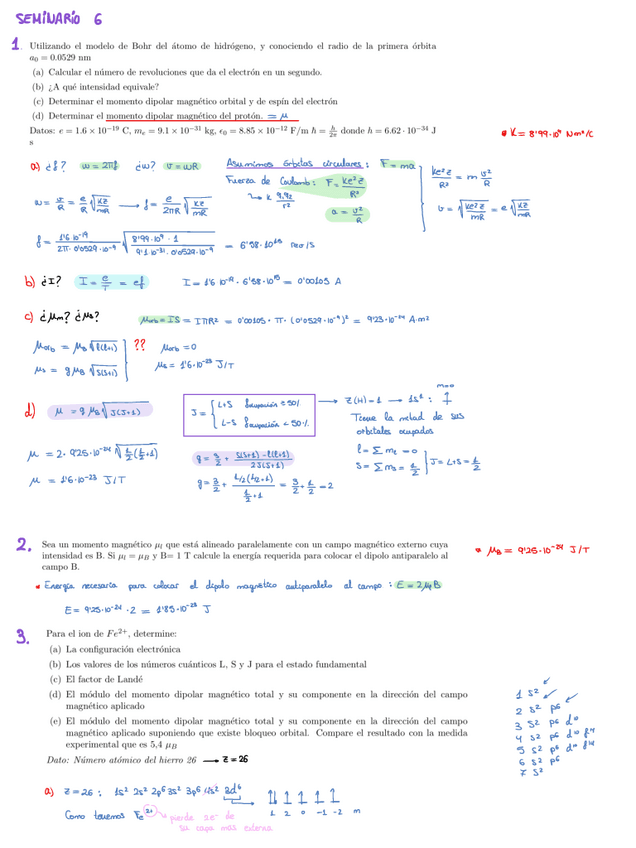 SEMINARIO 6
1. Utilizando el modelo de Bohr del átomo de hidrógeno, y conociendo el radio de la primera órbita
a₀ = 0.0529 nm
(a) Calcular el número de revoluciones que da el electrón en un segundo.
(b) ¿A qué intensidad equivale?
(c) Determinar el momento dipolar magnético orbital y de espín del electrón
(d) Determinar el momento dipolar magnético del protón. = μ
Datos: e = 1.6 × 10⁻¹⁹ C, mₑ = 9.1 × 10⁻³¹ kg, ϵ₀ = 8.85 × 10⁻¹² F/m ħ = h/2π donde h = 6.62 · 10⁻³⁴ J
s
* K = 8'99·10⁹ Nm²/C
a) ¿f? ω = 2πf ¿ω? v = ωR Asumimos órbitas circulares: F = ma
Fuerza de Coulomb: F = Ke²z/R²
→ K q₁q₂/r²
a = v²/R
Ke²z/R² = m v²/R
v = √(Ke²z/mR) = e √(Kz/mR)
ω = v/R = e/R √(Kz/mR) → f = e/2πR √(Kz/mR)
f = 1'6·10⁻¹⁹/2π·0'0529·10⁻⁹ √(8'99·10⁹·1/9'1·10⁻³¹·0'0529·10⁻⁹) = 6'58·10¹⁵ rev/s
b) ¿I? I = e/T = ef I = 1'6·10⁻¹⁹·6'58·10¹⁵ = 0'00105 A
c) ¿μm? ¿μs? μorb = IS = IπR² = 0'00105·π·(0'0529·10⁻⁹)² = 9'23·10⁻²⁴ A·m²
μorb = μB √l(l+1) ?? μorb = 0
μs = gμB √s(s+1) μs = 1'6·10⁻²³ J/T
d) μ = g μB √J(J+1)
J = { L+S ocupación ≥ 50%
L-S ocupación < 50%
→ z(H) = 1 → 1s¹ : ↑
m=0
Tiene la mitad de sus
orbitales ocupados
l = Σ ml = 0
s = Σ ms = 1/2
J = L+S = 1/2
μ = 2·9'25·10⁻²⁴ √(1/2(1/2+1))
μ = 1'6·10⁻²³ J/T
g = 3/2 + S(S+1) - l(l+1)/2J(J+1)
g = 3/2 + 1/2(1/2+1)/1/2+1 = 3/2 + 1/2 = 2
2. Sea un momento magnético μₗ que está alineado paralelamente con un campo magnético externo cuya
intensidad es B. Si μₗ = μB y B= 1 T calcule la energía requerida para colocar el dipolo antiparalelo al
campo B.
* μB = 9'25·10⁻²⁴ J/T
* Energía necesaria para colocar el dipolo magnético antiparalelo al campo : E = 2μB
E = 9'25·10⁻²⁴·2 = 1'85·10⁻²³ J
3. Para el ion de Fe²⁺, determine:
(a) La configuración electrónica
(b) Los valores de los números cuánticos L, S y J para el estado fundamental
(c) El factor de Landé
(d) El módulo del momento dipolar magnético total y su componente en la dirección del campo
magnético aplicado
(e) El módulo del momento dipolar magnético total y su componente en la dirección del campo
magnético aplicado suponiendo que existe bloqueo orbital. Compare el resultado con la medida
experimental que es 5,4 μB
Dato: Número atómico del hierro 26 → z = 26
1 s²
2 s² p⁶
3 s² p⁶ d¹⁰
4 s² p⁶ d¹⁰ f¹⁴
5 s² p⁶ d¹⁰ f¹⁴
6 s² p⁶
7 s²
a) z = 26 : 1s² 2s² 2p⁶ 3s² 3p⁶ 4s² 3d⁶ ↑↓ ↑ ↑ ↑ ↑
2 1 0 -1 -2 m
Como tenemos Fe²⁺ → pierde 2e⁻ de
su capa más externa